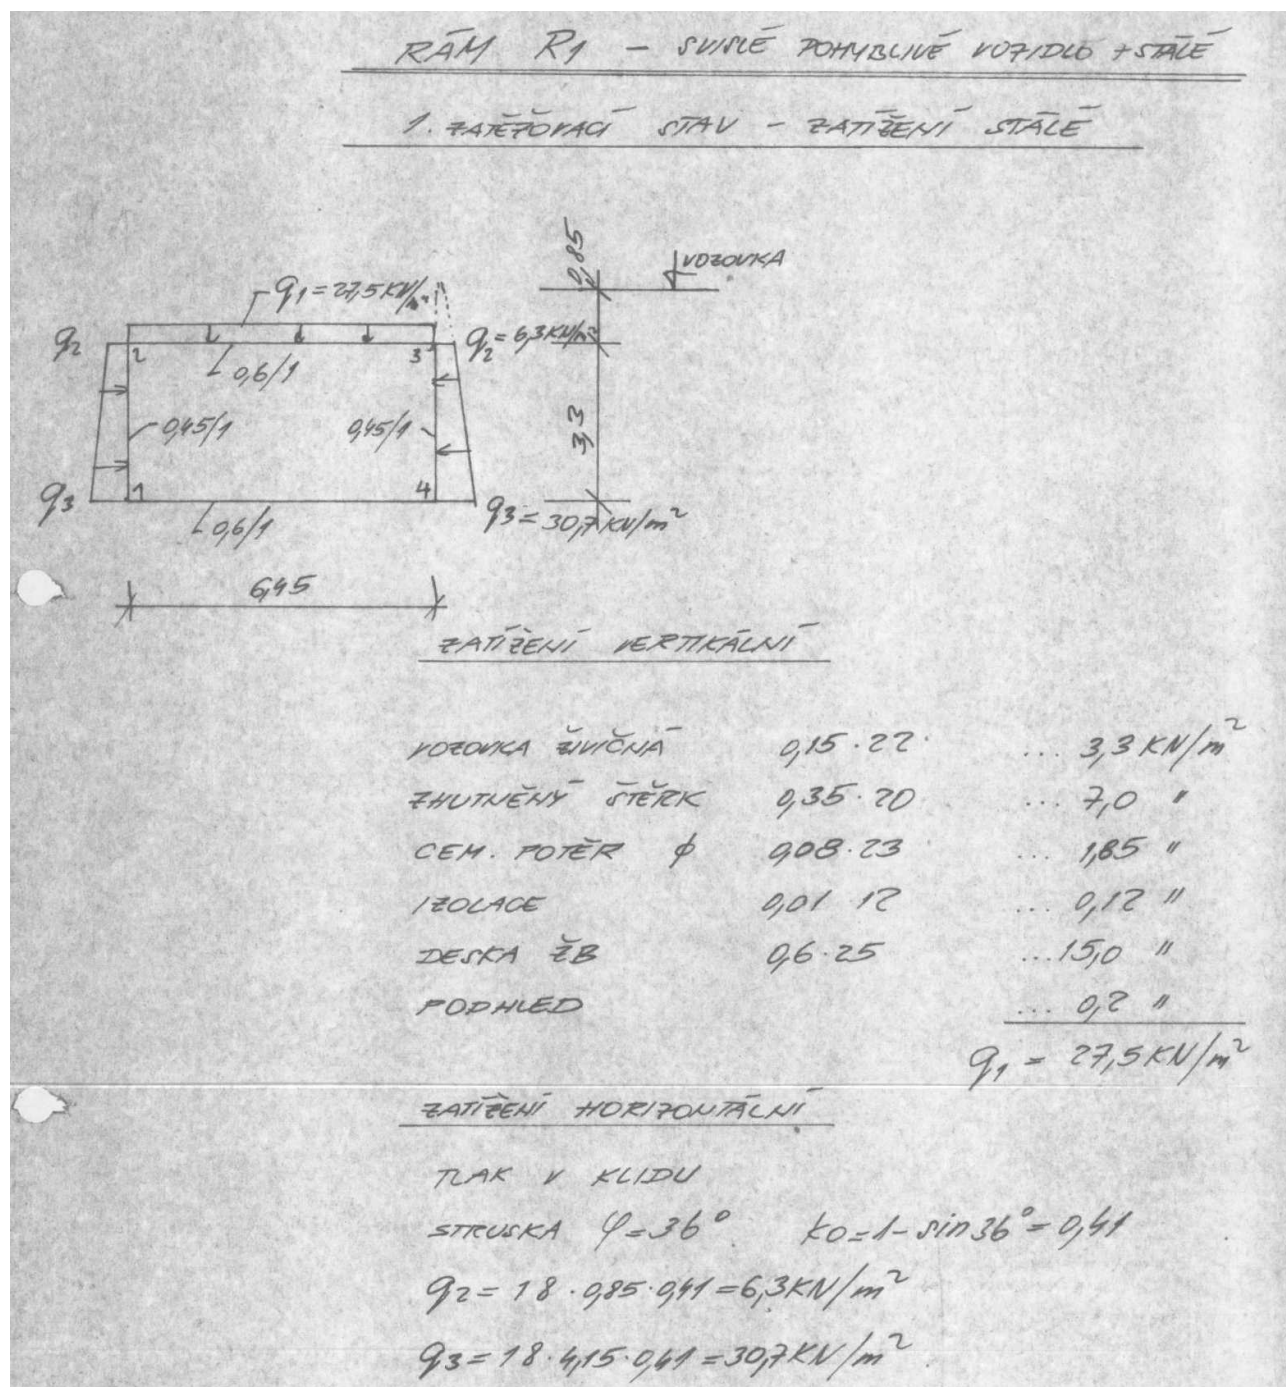 RÁM R1 - SVISLÉ POHYBLIVÉ VOZIDLO + STÁLÉ
1. ZATĚŽOVACÍ STAV - ZATÍŽENÍ STÁLÉ
0,85
VOZOVKA
q1 = 27,5 KN/m²
q2
2
3
q2 = 6,3 KN/m²
0,6/1
0,45/1
0,45/1
3,3
q3
1
4
q3 = 30,7 KN/m²
0,6/1
6,45
ZATÍŽENÍ VERTIKÁLNÍ
VOZOVKA ŽIVIČNÁ 0,15 · 22 ... 3,3 KN/m²
ZHUTNĚNÝ ŠTĚRK 0,35 · 20 ... 7,0 "
CEM. POTĚR ϕ 0,08 · 23 ... 1,85 "
IZOLACE 0,01 12 ... 0,12 "
DESKA ŽB 0,6 · 25 ... 15,0 "
PODHLED ... 0,2 "
q1 = 27,5 KN/m²
ZATÍŽENÍ HORIZONTÁLNÍ
TLAK V KLIDU
STRUSKA φ = 36° ko = 1 - sin 36° = 0,41
q2 = 18 · 0,85 · 0,41 = 6,3 KN/m²
q3 = 18 · 4,15 · 0,41 = 30,7 KN/m²